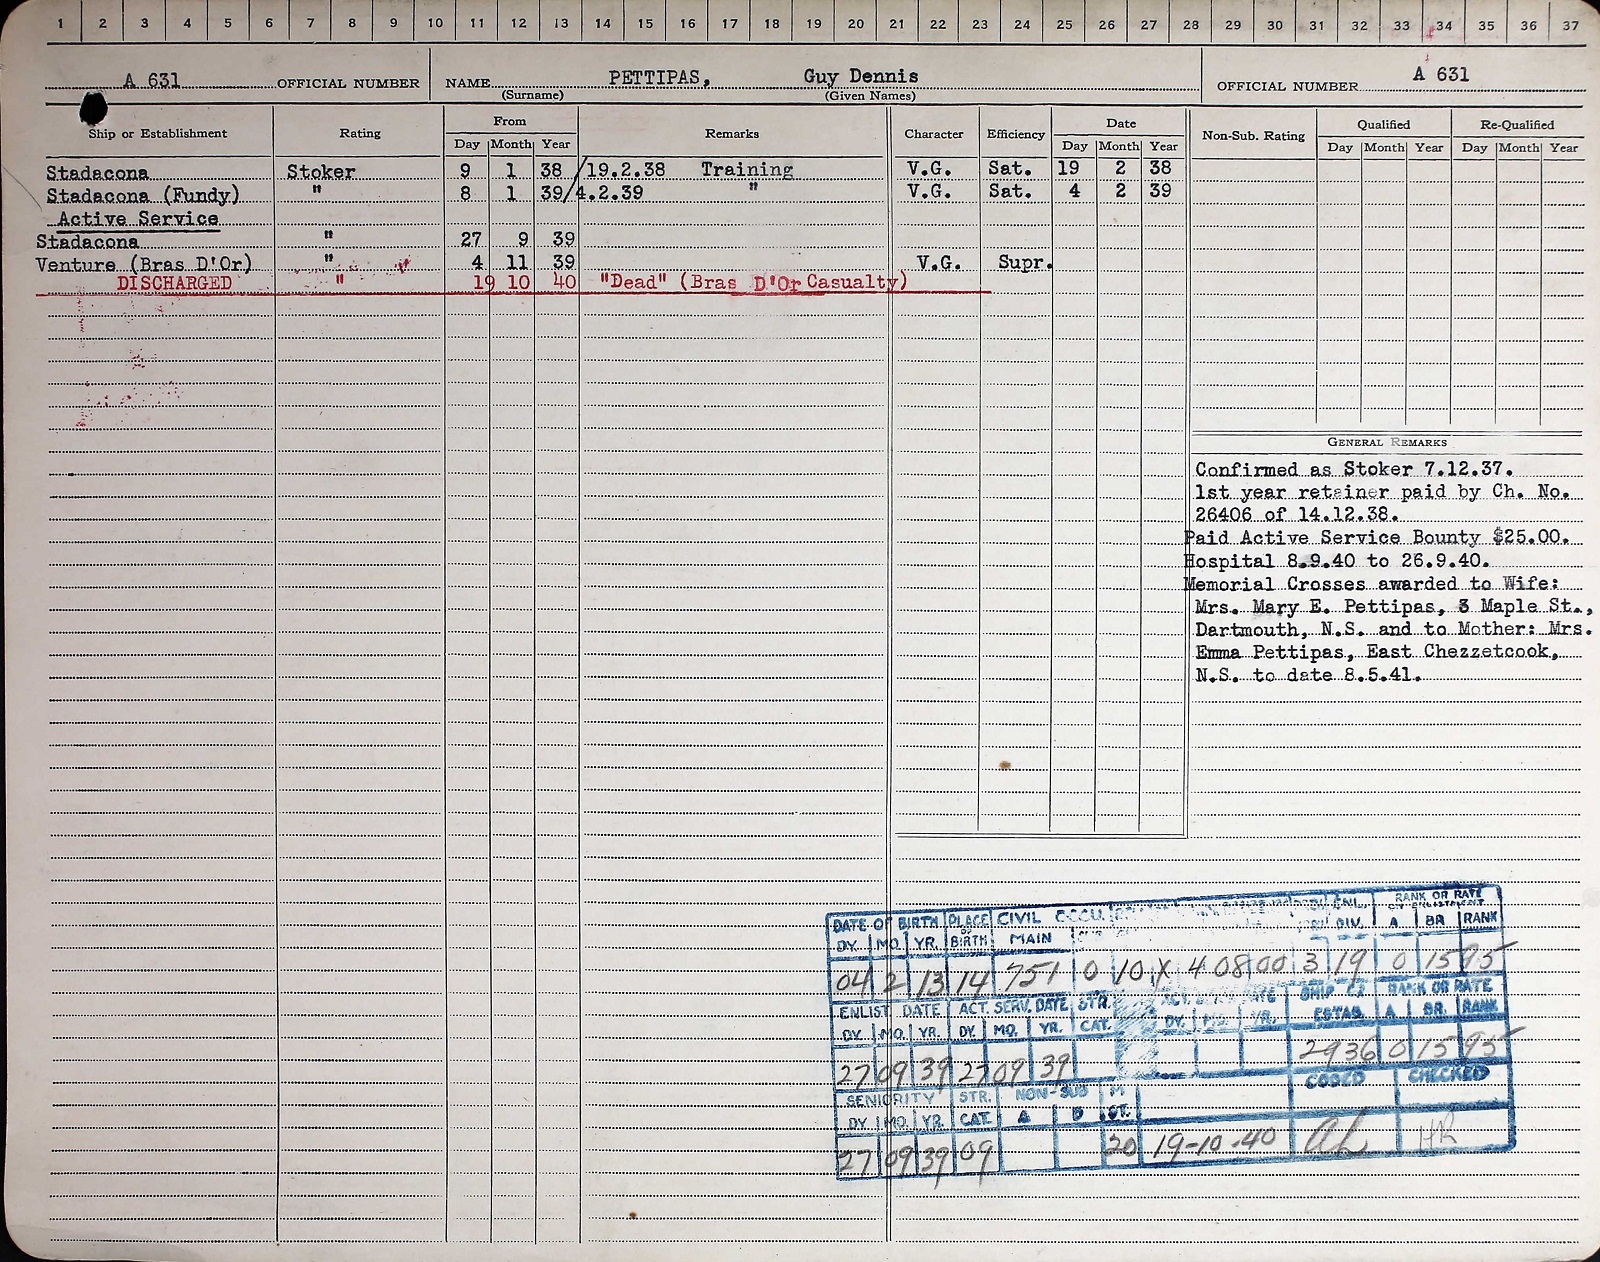 1 2 3 4 5 6 7 8 9 10 11 12 13 14 15 16 17 18 19 20 21 22 23 24 25 26 27 28 29 30 31 32 33 34 35 36 37
A 631 OFFICIAL NUMBER NAME PETTIPAS, Guy Dennis OFFICIAL NUMBER A 631
(Surname) (Given Names)
Ship or Establishment Rating From Remarks Character Efficiency Date Non-Sub. Rating Qualified Re-Qualified
Day Month Year Day Month Year Day Month Year Day Month Year
Stadacona Stoker 9 1 38 /19.2.38 Training V.G. Sat. 19 2 38
Stadacona (Fundy) " 8 1 39/4.2.39 " V.G. Sat. 4 2 39
Active Service
Stadacona " 27 9 39
Venture (Bras D'Or) " 4 11 39 V.G. Supr.
DISCHARGED " 19 10 40 "Dead" (Bras D'Or Casualty)
GENERAL REMARKS
Confirmed as Stoker 7.12.37.
1st year retainer paid by Ch. No.
26406 of 14.12.38.
Paid Active Service Bounty $25.00.
Hospital 8.9.40 to 26.9.40.
Memorial Crosses awarded to Wife:
Mrs. Mary E. Pettipas, 3 Maple St.,
Dartmouth, N.S. and to Mother: Mrs.
Emma Pettipas, East Chezzetcook,
N.S. to date 8.5.41.
DATE OF BIRTH PLACE OF BIRTH CIVIL OCCU. ENL. RANK OR RATE
DY. MO. YR. MAIN DIV. A BR RANK
04 2 13 14 751 0 10 X 4 08 00 3 19 0 15 95
ENLIST DATE ACT. SERV. DATE STR. SHIP RANK OR RATE
DY. MO. YR. DY. MO. YR. CAT. DY. YR. ESTAB. A BR. RANK
27 09 39 27 09 39 2936 0 15 95
SENIORITY STR. NON-SUB M CODED CHECKED
DY. MO. YR. CAT. A B ST.
27 09 39 09 20 19-10-40 HR